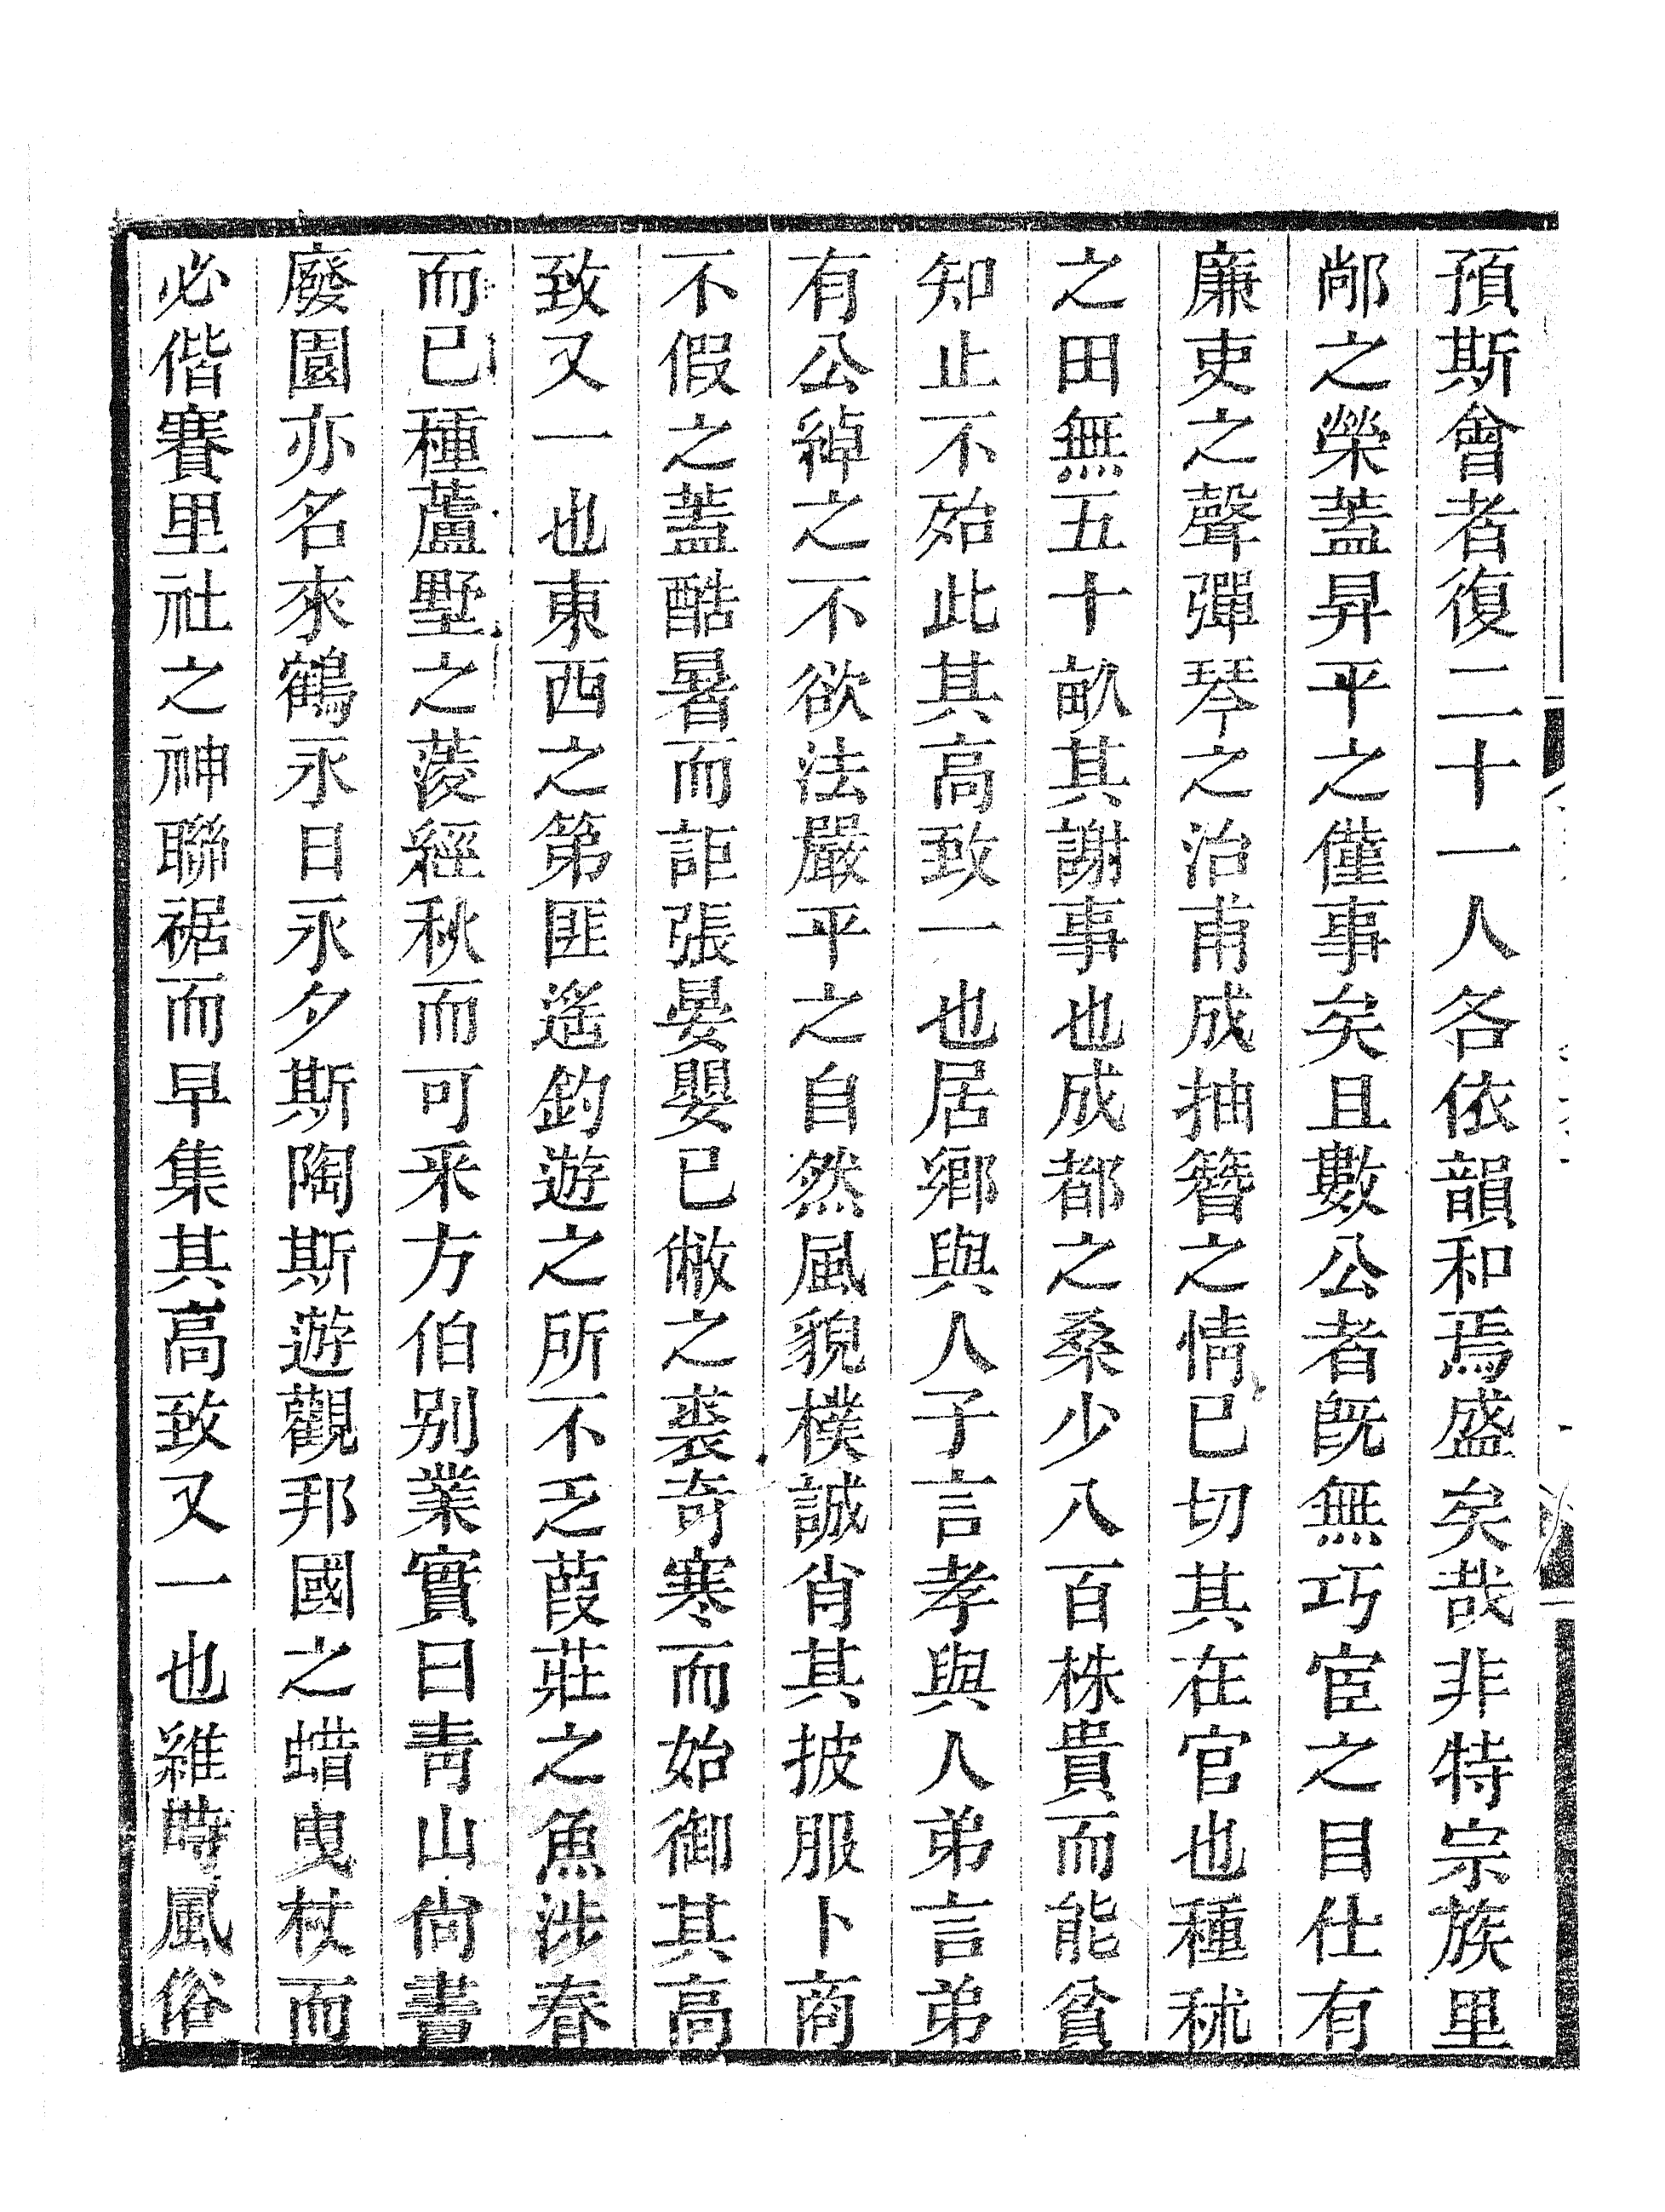 預斯會者復二十一人各依韻和焉盛矣哉非特宗族里
鄰之榮蓋昇平之僅事矣且數公者旣無巧宦之目仕有
廉吏之聲彈琴之治甫成抽簪之情已切其在官也種秫
之田無五十畝其謝事也成都之桑少八百株貴而能貧
知止不殆此其高致一也居鄉與人子言孝與人弟言弟
有公綽之不欲法嚴平之自然風貌樸誠肖其披服卜商
不假之蓋酷暑而詎張晏嬰已敝之裘奇寒而始御其高
致又一也東西之第匪遙釣遊之所不乏葭莊之魚涉春
而已種蘆墅之蔆經秋而可采方伯別業實曰靑山尙書
廢園亦名來鶴永日永夕斯陶斯遊觀邦國之蜡曳杖而
必偕賽里社之神聯裾而早集其高致又一也維時風俗